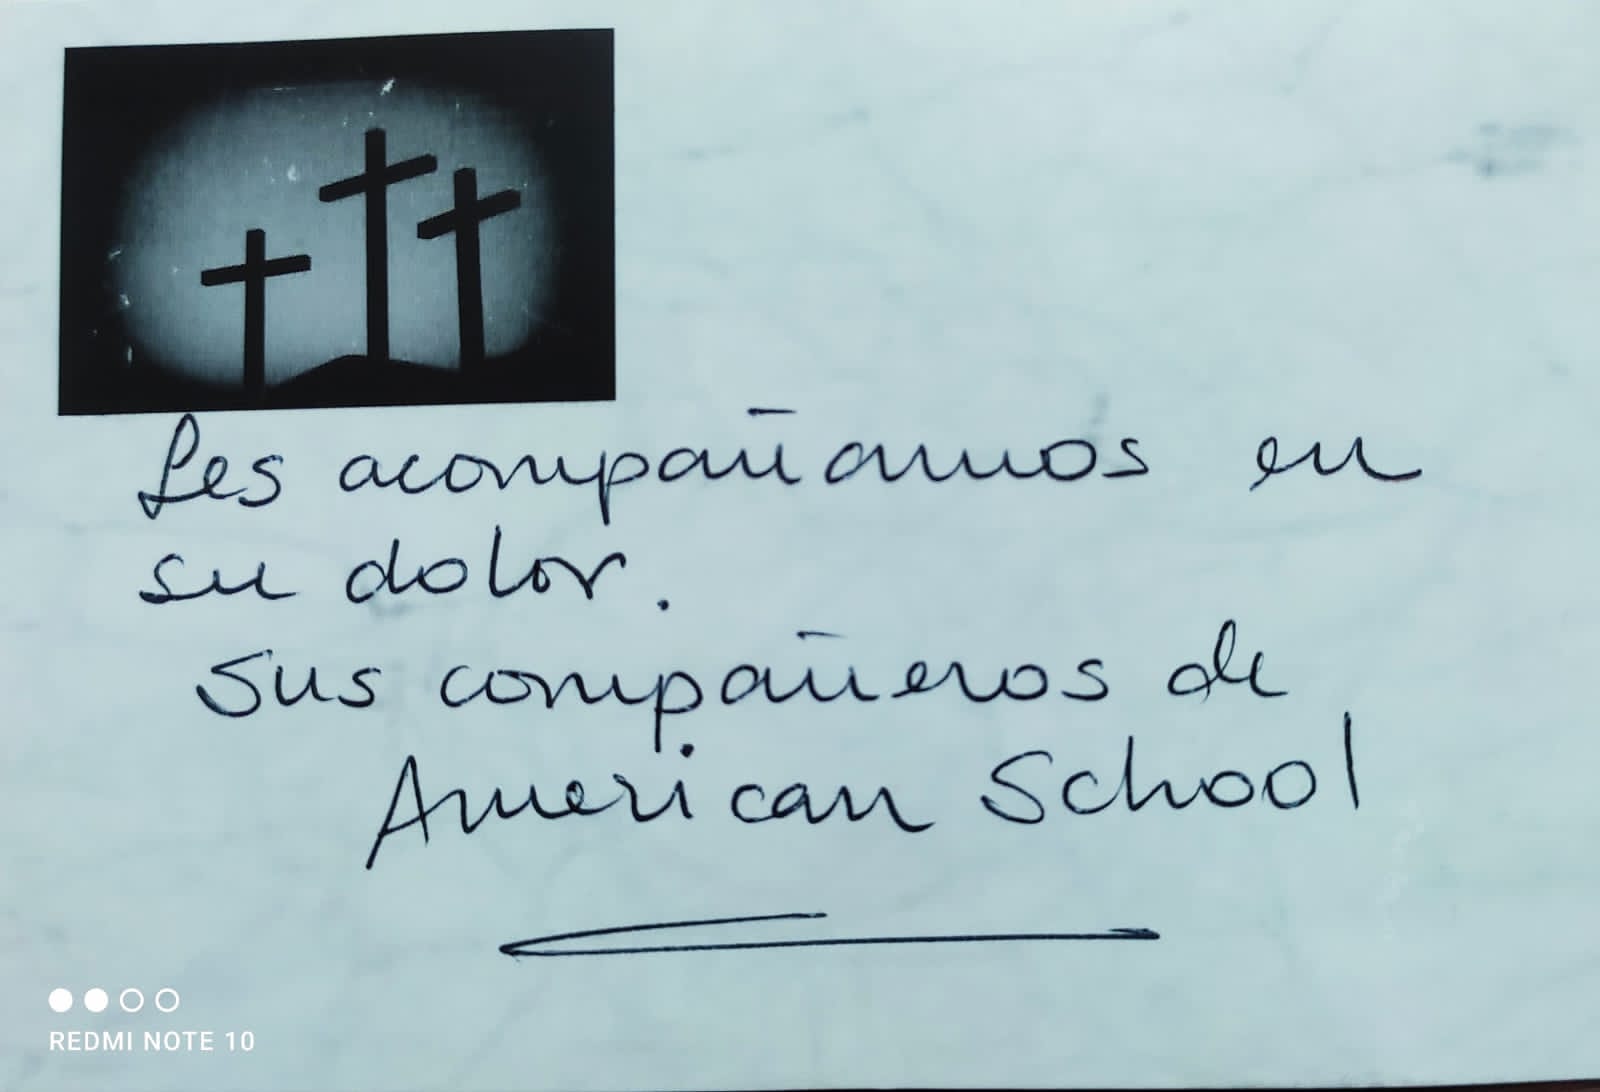 Les acompañamos en
su dolor.
Sus compañeros de
American School
REDMI NOTE 10